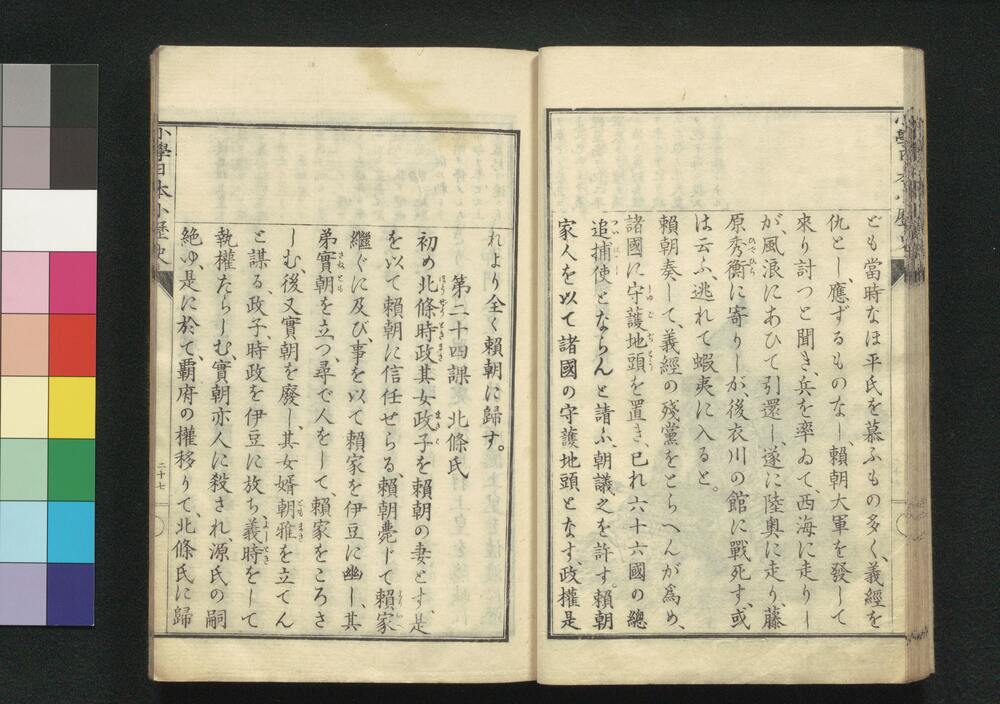 ども當時なほ平氏を慕ふもの多く、義經を
仇とし、應ずるものなし、賴朝大軍を發して
來り討つと聞き、兵を率ゐて、西海に走りし
が、風浪にあひて引還し、遂に陸奥に走り、藤
原秀衡に寄りしが、後衣川の館に戰死す、或
は云ふ、逃れて蝦夷に入ると。
賴朝奏して、義經の殘黨をとらへんが爲め、
諸國に守護地頭を置き、己れ六十六國の總
追捕使とならんと請ふ、朝議之を許す。賴朝
家人を以て諸國の守護地頭となす、政權是
れより全く賴朝に歸す。
第二十四課 北條氏
初め北條時政其女政子を賴朝の妻とす、是
を以て賴朝に信任せらる、賴朝薨じて賴家
繼ぐに及び、事を以て賴家を伊豆に幽し、其
弟實朝を立つ、尋で人をして、賴家をころさ
しむ後又實朝を廢し、其女婿朝雅を立てん
と謀る、政子、時政を伊豆に放ち義時をして
執權たらしむ、實朝亦人に殺され、源氏の嗣
絶ゆ、是に於て、覇府の權移りて、北條氏に歸
小學日本小歷史
二十七